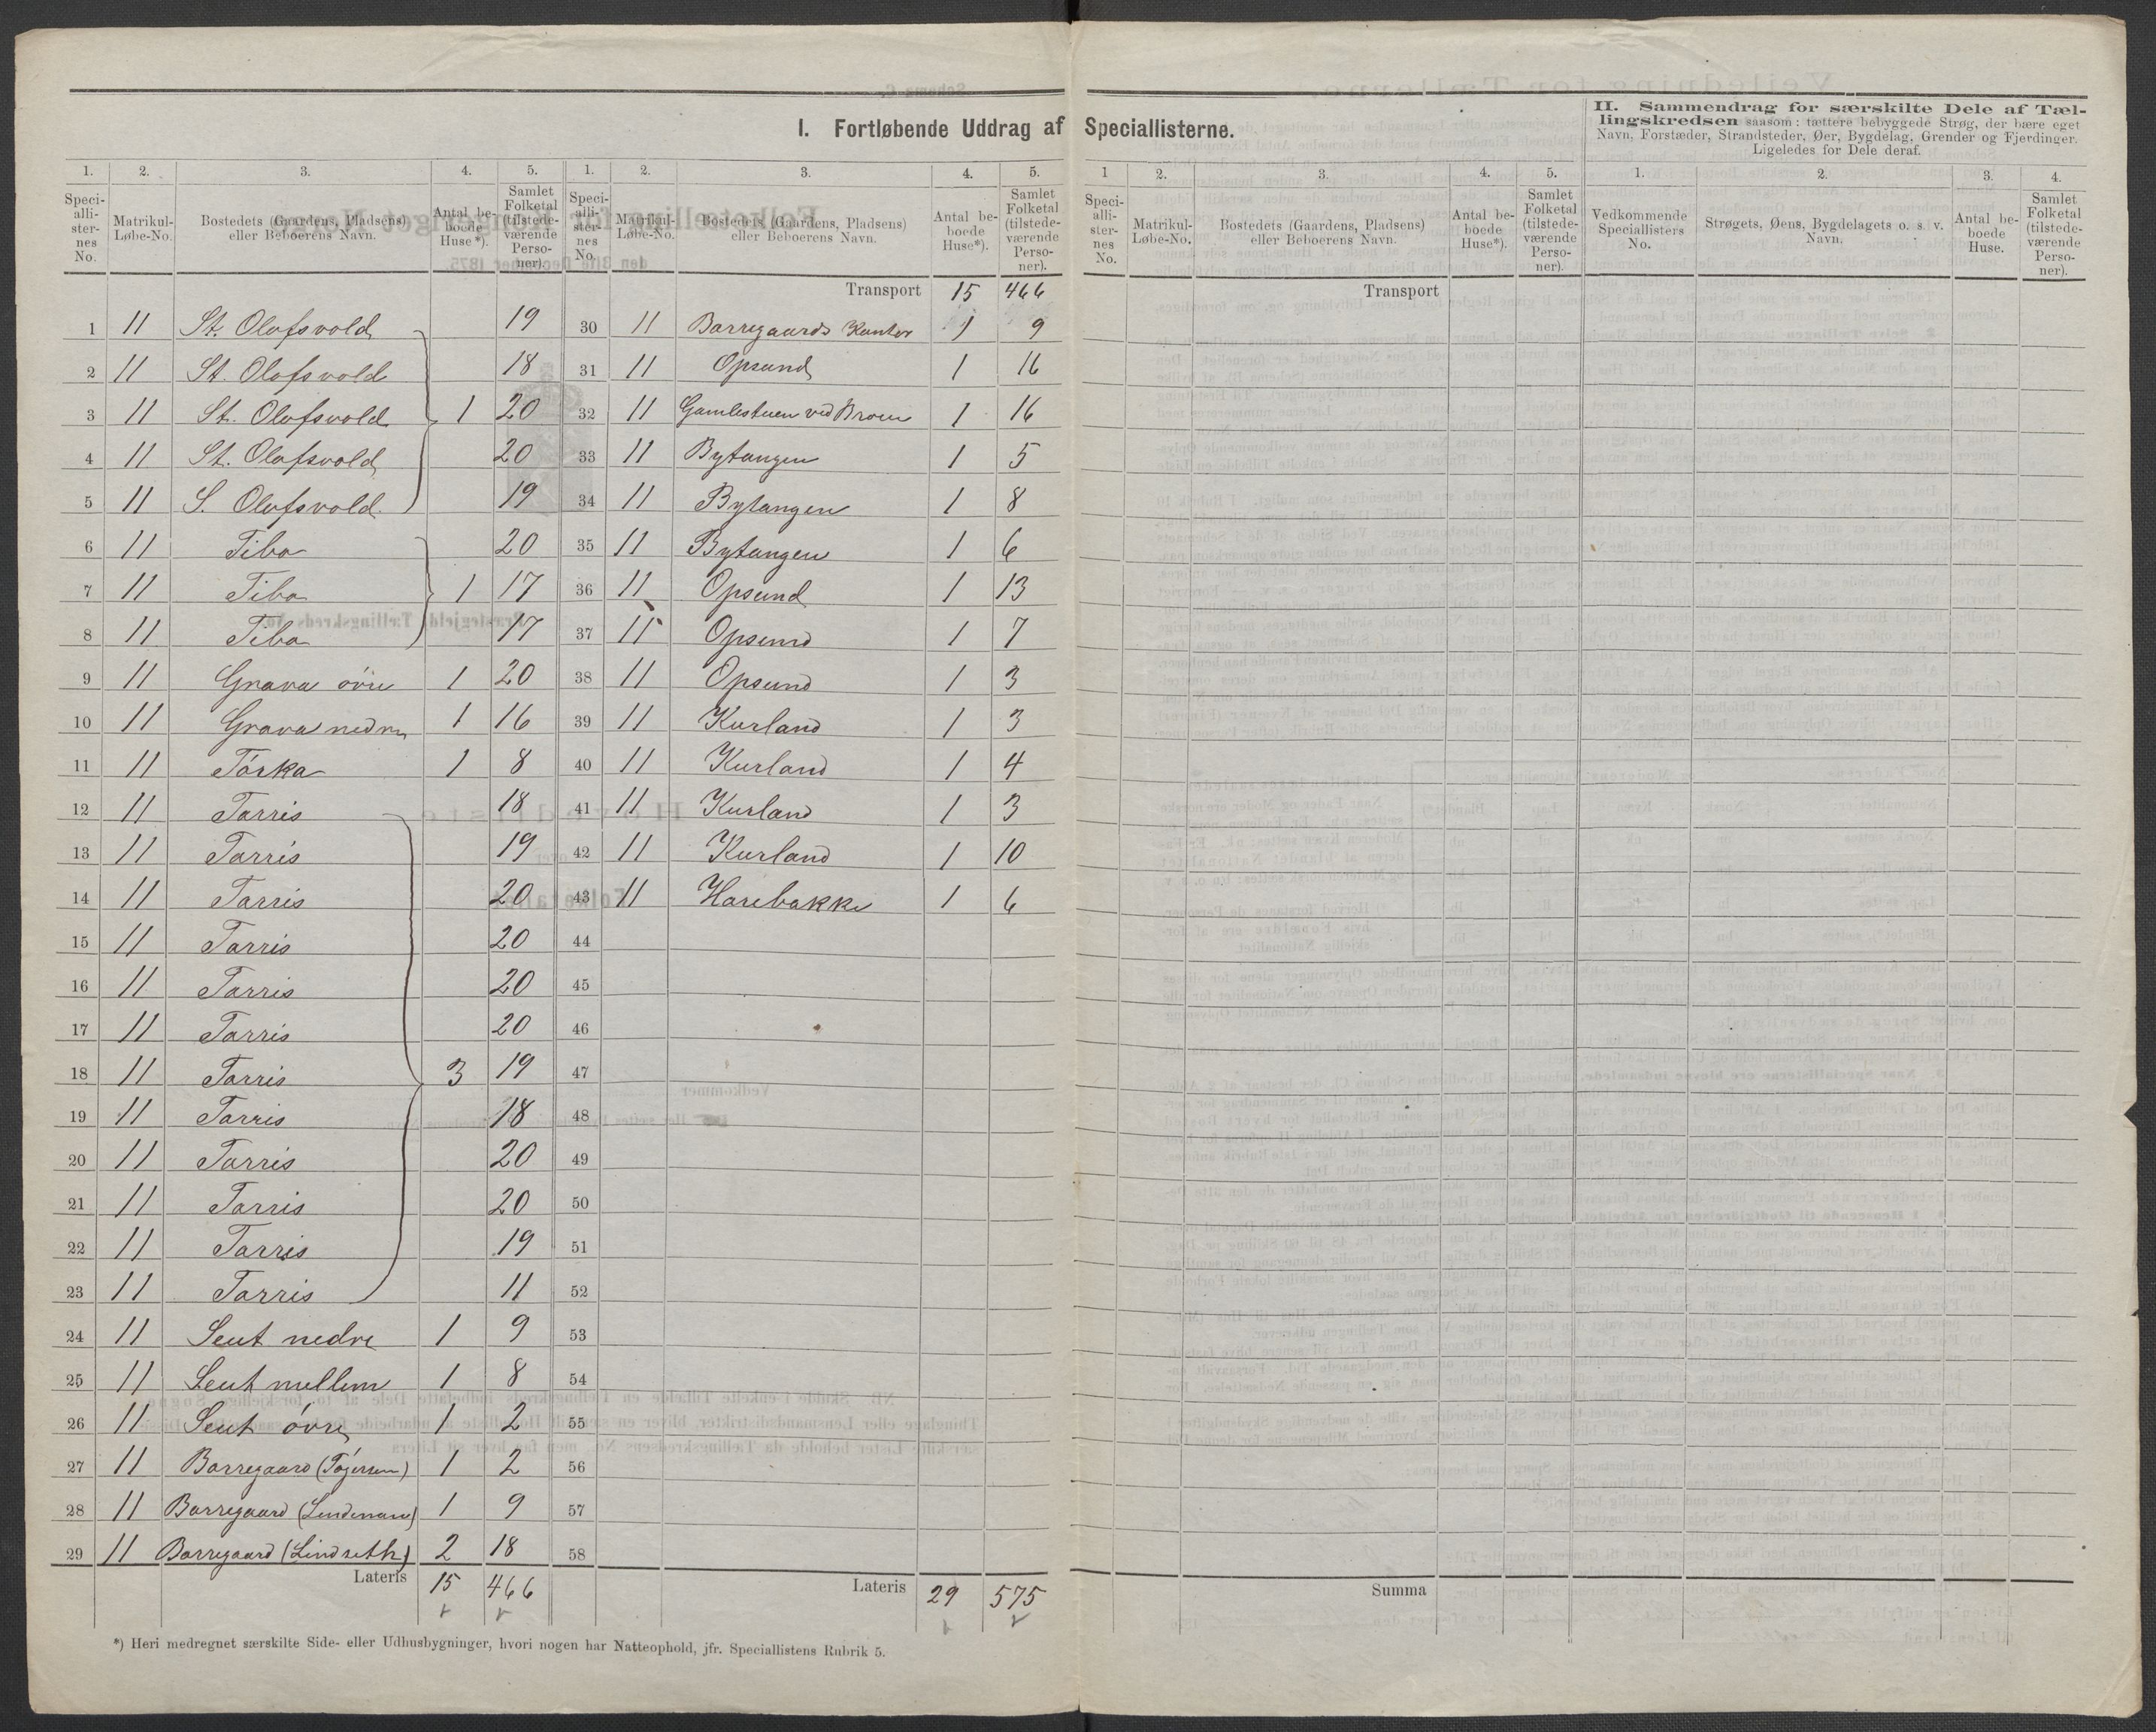 I. Fortløbende Uddrag af Speciallisterne.
1. 2. 3. 4. 5. 1. 2. 3. 4. 5.
Speciallisternes No. Matrikul-Løbe-No. Bostedets (Gaardens, Pladsens) eller Beboerens Navn. Antal beboede Huse*). Samlet Folketal (tilstedeværende Personer).
Speciallisternes No. Matrikul-Løbe-No. Bostedets (Gaardens, Pladsens) eller Beboerens Navn. Antal beboede Huse*). Samlet Folketal (tilstedeværende Personer).
1 11 St. Olafsvold 19
2 11 St. Olafsvold 18
3 11 St. Olafsvold 1 20
4 11 St. Olafsvold 20
5 11 S. Olafsvold 19
6 11 Tibo 20
7 11 Tibo 1 17
8 11 Tibo 17
9 11 Grava övre 1 20
10 11 Grava nedre 1 16
11 11 Tórka 1 8
12 11 Tarris 18
13 11 Tarris 19
14 11 Tarris 20
15 11 Tarris 20
16 11 Tarris 20
17 11 Tarris 20
18 11 Tarris 3 19
19 11 Tarris 18
20 11 Tarris 20
21 11 Tarris 20
22 11 Tarris 19
23 11 Tarris 11
24 11 Seut nedre 1 9
25 11 Seut mellem 1 8
26 11 Seut óvre 1 2
27 11 Borregaard 1 2
28 11 Borregaard (Lindemann) 1 9
29 11 Borregaard (Lindseth) 2 18
Lateris 15 466
Transport 15 466
30 11 Borregaards Kontor 1 9
31 11 Opsund 1 16
32 11 Gamlestuen ved Broen 1 16
33 11 Bytangen 1 5
34 11 Bytangen 1 8
35 11 Bytangen 1 6
36 11 Opsund 1 13
37 11 Opsund 1 7
38 11 Opsund 1 3
39 11 Kurland 1 3
40 11 Kurland 1 4
41 11 Kurland 1 3
42 11 Kurland 1 10
43 11 Harebakke 1 6
44
45
46
47
48
49
50
51
52
53
54
55
56
57
58
Lateris 29 575
*) Heri medregnet særskilte Side- eller Udhusbygninger, hvori nogen har Natteophold, jfr. Speciallistens Rubrik 5.
1 2. 3. 4. 5.
Speciallisternes No. Matrikul-Løbe-No. Bostedets (Gaardens, Pladsens) eller Beboerens Navn. Antal beboede Huse*). Samlet Folketal (tilstedeværende Personer).
Transport
Summa
II. Sammendrag for særskilte Dele af Tæl-
lingskredsen saasom: tættere bebyggede Strøg, der bære eget
Navn, Forstæder, Strandsteder, Øer, Bygdelag, Grender og Fjerdinger.
Ligeledes for Dele deraf.
1. 2. 3. 4.
Vedkommende Speciallisters No. Strøgets, Øens, Bygdelagets o. s. v. Navn. Antal beboede Huse. Samlet Folketal (tilstedeværende Personer).